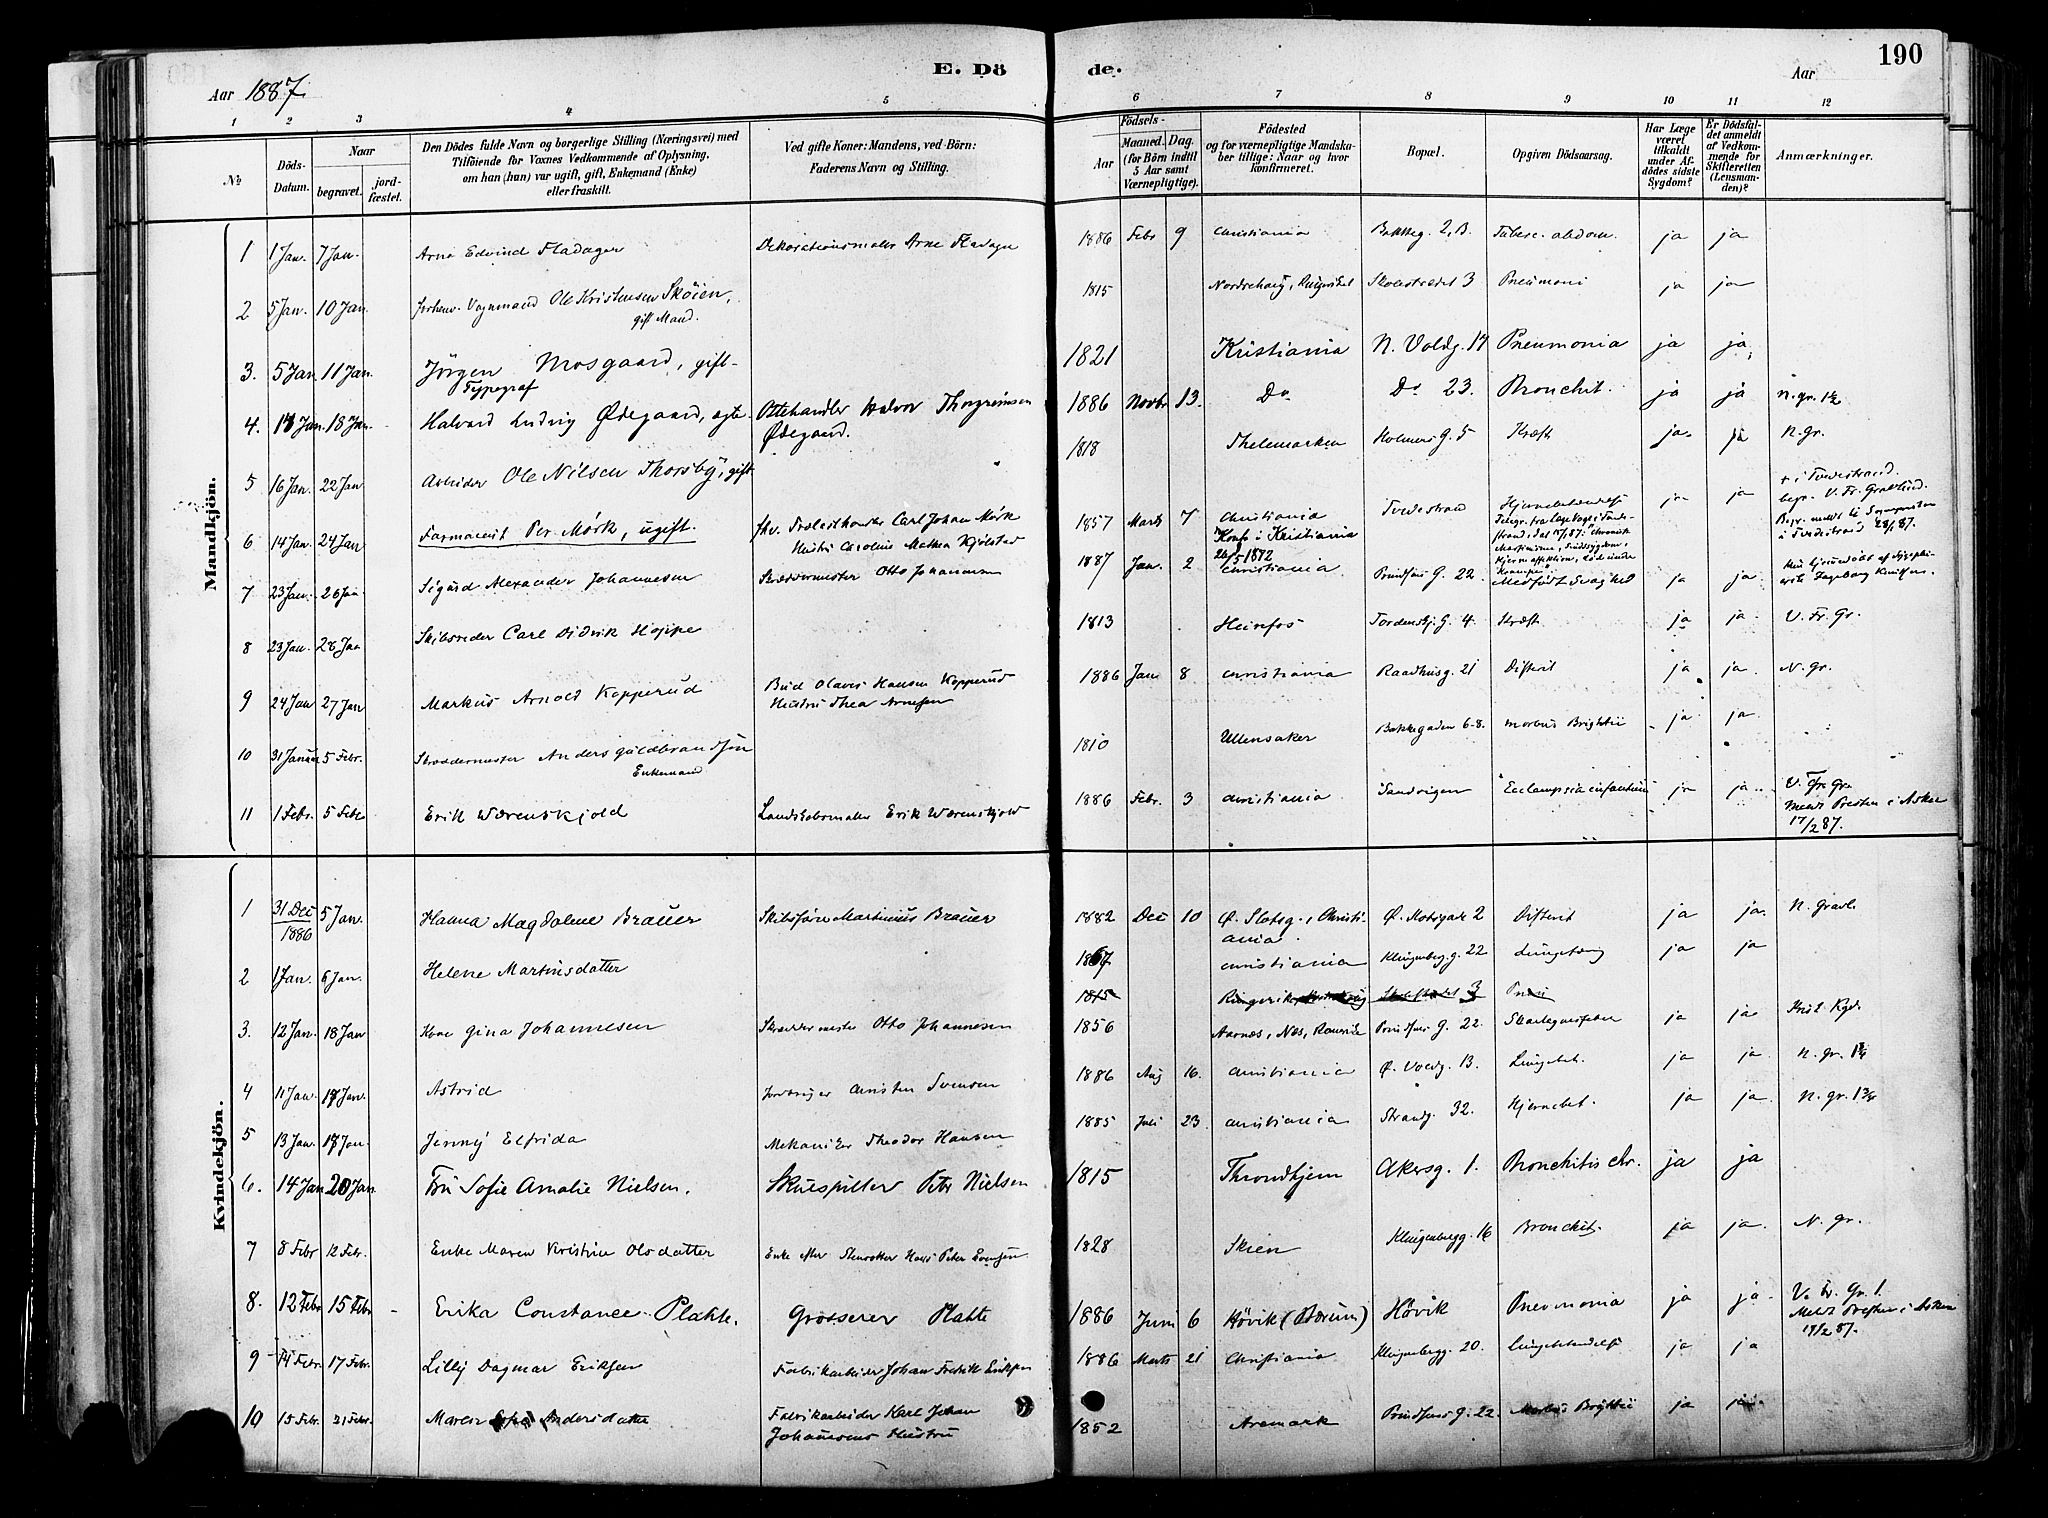 190
E. Dö
de.
Aar 1887.
Aar
1 2 3 4 5
6 7 8 9 10 11 12
№
Döds-Datum.
Naar
begravet.
jord-fæstet.
Den Dödes fulde Navn og borgerlige Stilling (Næringsvei) med
Tilföiende for Voxnes Vedkommende af Oplysning,
om han (hun) var ugift, gift, Enkemand (Enke)
eller fraskilt.
Ved gifte Koner: Mandens, ved Börn:
Faderens Navn og Stilling.
Födsels-
Aar
Maaned. Dag.
(for Börn indtil
5 Aar samt
Værnepligtige).
Födested
og for værnepligtige Mandska-
ber tillige: Naar og hvor
konfirmeret.
Bopæl.
Opgiven Dödsaarsag.
Har Læge
været
tilkaldt
under Af-
dödes sidste
Sygdom?
Er Dödsfal-
det anmeldt
af Vedkom-
mende for
Skifteretten
(Lensman-
den)?
Anmærkninger.
Mandkjön.
1 1 Jan. 7 Jan. Arne Edvind Fladager Dekorationsmaler Arne Fladager 1886 Febr 9 Christiania Bakkeg. 2, B. Tuberc. abdom. ja ja
2 5 Jan. 10 Jan. Forhenv. Vognmand Ole Kristensen Sköien, 1815 Nordrehoug, Ringeriket Skolestrædet 3 Pneumoni ja ja
gift Mand.
3. 5 Jan. 11 Jan. Jörgen Mosgaard, gift 1821 Kristiania N. Voldg. 14 Pneumonia ja ja
Typograf
4. 14 Jan. 18 Jan. Halvard Ludvig Ødegaard, ægte Halvor Thorgrimsen 1886 Novbr 13. Do Do 23. Bronchit. ja ja N. gr. 1/2
Ødegaard.
5 16 Jan. 22 Jan Arbeider Ole Nilsen Thorsby, gift 1818 Thelemarken Holmens G. 5 Kræft ja ja N. gr.
6 14 Jan. 24 Jan Farmaceut Per Mörk, ugift. fhv. Trælasthandler Carl Johan Mörk 1857 Marts 7 Christiania Tvedestrand ja ja + i Tvedestrand.
Hustru Caroline Mathea Kjölstad Konf. i Kristiania 1872
7 23 Jan. 26 Jan Sigurd Alexander Johannesen Skræddermester Otto Johannesen 1887 Jan. 2 Christiania Prindsens G. 22. Medfödt Svaghed ja ja
8 23 Jan. 28 Jan Skibsreder Carl Didrik Hoppe 1813 Tordenskj. G. 4. Kræft ja ja V. Fr. Gr.
9 24 Jan 27 Jan Markus Arnold Kopperud Bud Olaves Hansen Kopperud 1886 Jan 8 Christiania Raadhusg. 21 Difterit ja ja N. gr.
Hustru Thea Arnesen
10 31 Januar 5 Febr. Skræddermester Anders Guldbrandsen 1810 Ullensaker Bakkegaden 6-8. Morbus Brightii ja ja
Enkemand
11 1 Febr. 5 Febr Erik Wærenskjold Landskabsmaler Erik Wærenskjold 1886 Febr. 3 Christiania Sandvigen Eclampsia infantum ja ja V. Fr. Gr.
Meldt Presten i Asker
17/2 87.
Kvindekjön.
1 31 Dec 1886 5 Jan. Hanna Magdalene Brauer Skibsförer Martinius Brauer 1882 Dec 10 Ø. Slotsg., Christiania Difterit ja ja N. gravl.
2 1 Jan. 6 Jan. Helene Martinsdatter 1867 Christiania Klingenbergg. 22 ja ja
1815 3
3. 12 Jan 18 Jan Kone Gina Johannesen Skræddermester Otto Johannesen 1856 Aarnes, Nes, Romerike Prindsens G. 22. Skarlagensfeber ja ja Krist. Kgd.
4 11 Jan. 17 Jan. Astrid Christen Svensen 1886 Aug 16. Christiania Ø. Voldg. 13. Lungebet. ja ja N. gr.
5 13 Jan. 17 Jan. Jenny Elfrida Mekaniker Theodor Hansen 1885 Juli 23. Christiania Strandg. 32. Hjernebet. ja ja N. gr.
6. 14 Jan 20 Jan. Fru Sofie Amalie Nielsen. Skuespiller Peter Nielsen 1815 Throndhjem Akersg. 1. Bronchitis chr. ja ja
7 8 Febr 12 Febr. Enke Maren Kristine Olsdatter Enke efter Hans Peter Svensen 1828 Skien Klingenbergg. 16 Bronchit. ja ja N. gr.
8. 12 Febr 15 Febr Erika Constance Plahte. Grosserer Plahte 1886 Juni 6 Hövik (Bærum) Hövik Pneumonia ja ja V. Fr. Gr. 1.
Meldt Presten i Asker
19/2 87.
9 14 Febr. 17 Febr. Lilly Dagmar Eriksen Fabrikarbeider Johan Fredrik Eriksen 1886 Marts 21 Christiania Klingenbergg. 20. Lungebetændelse ja ja
10 15 Febr. 21 Febr. Maren Andersdatter Fabrikarbeider Karl Johan 1852 Aremark Prindsens G. 22. Morbus Brightii ja ja
Johansens Hustru